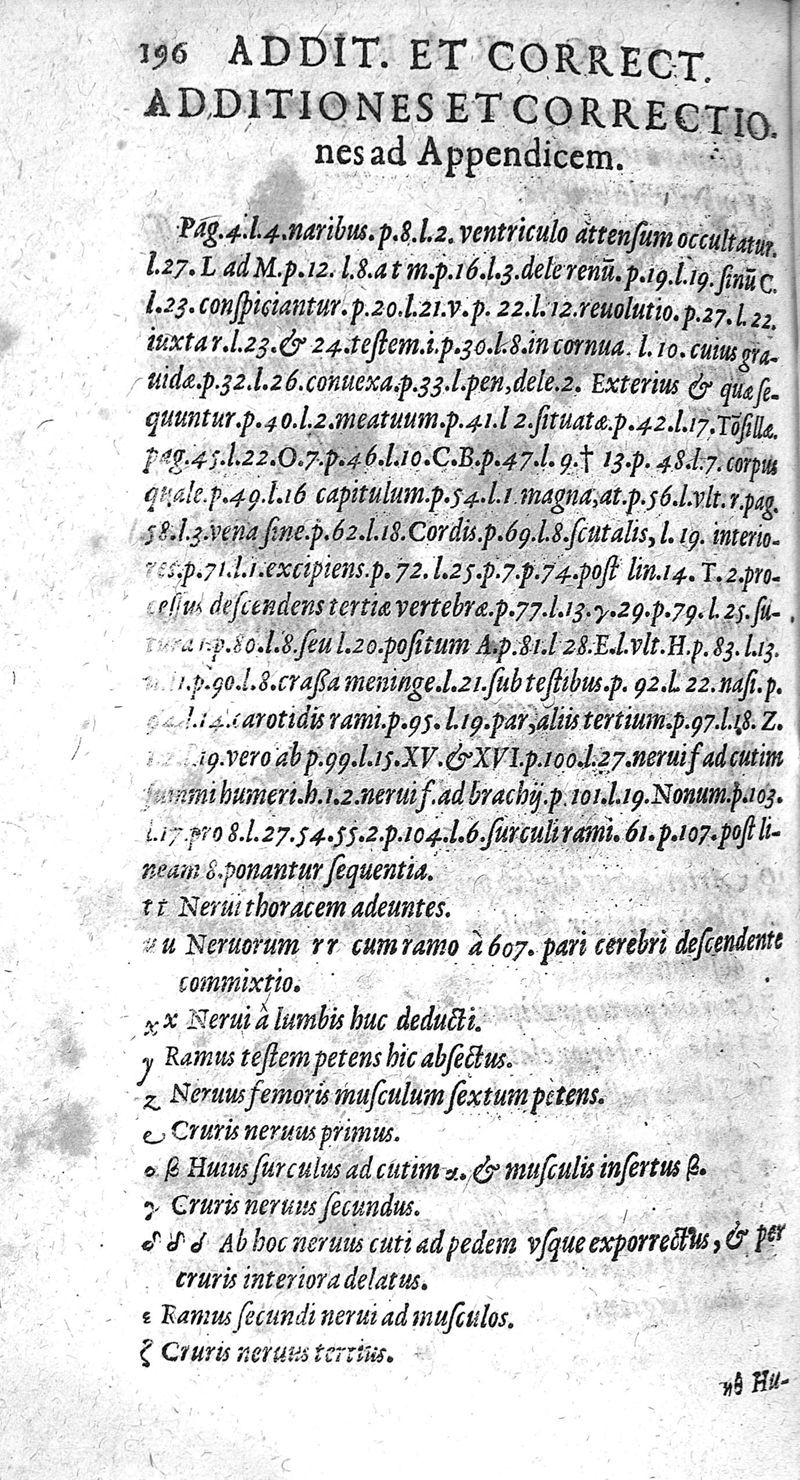 196 ADDIT. ET CORRECT.
ADDITIONES ET CORRECTIO.
nes ad Appendicem.
Pag.4.l.4.naribus.p.8.l.2. ventriculo attenſum occultatur.
l.27. L ad M.p.12. l.8.a t m.p.16.l.3.dele renū.p.19.l.19.ſinū C.
l.23.conſpiciantur.p.20.l.21.v.p. 22.l.12.reuolutio.p.27.l.22.
iuxta r.l.23.& 24.teſtem.i.p.30.l.8.in cornua. l.10.cuius gra-
uidæ.p.32.l.26.conuexa.p.33.l.pen,dele.2. Exterius & quæ ſe-
quuntur.p.40.l.2.meatuum.p.41.l 2.ſituatæ.p.42.l.17.Tōſillæ.
pag.45.l.22.O.7.p.46.l.10.C.B.p.47.l.9.† 13.p. 48.l.7.corpus
quale.p.49.l.16 capitulum.p.54.l.1.magna,at.p.56.l.vlt.r.pag.
58.l.3.vena ſine.p.62.l.18.Cordis.p.69.l.8.ſcutalis, l.19. interio-
res.p.71.l.1.excipiens.p.72.l.25.p.7.p.74.poſt lin.14. T.2.pro-
ceſſus deſcendens tertiæ vertebræ.p.77.l.13.γ.29.p.79.l.25.ſu-
tura p.80.l.8.ſeu l.20.poſitum A.p.81.l 28.E.l.vlt.H.p. 83.l.13.
p.90.l.8.craſſa meninge.l.21.ſub teſtibus.p. 92.l.22.naſi.p.
l.14.carotidis rami.p.95. l.19.par,aliis tertium.p.97.l.18. Z.
19.vero ab p.99.l.15.XV.&XVI.p.100.l.27.nerui f ad cutim
ſummi humeri.h.1.2.nerui f.ad brachij.p.101.l.19.Nonum.p.103.
l.17.pro 8.l.27.54.55.2.p.104.l.6.ſurculi rami. 61.p.107.poſt li-
neam 8.ponantur ſequentia.
t t Nerui thoracem adeuntes.
u u Neruorum r r cum ramo à 607. pari cerebri deſcendente
commixtio.
x x Nerui à lumbis huc deducti.
y Ramus teſtem petens hic abſectus.
z Neruus femoris muſculum ſextum petens.
Cruris neruus primus.
β Huius ſurculus ad cutim α. & muſculis inſertus β.
γ Cruris neruus ſecundus.
δ δ δ Ab hoc neruus cuti ad pedem vſque exporrectus, & per
cruris interiora delatus.
ε Ramus ſecundi nerui ad muſculos.
ζ Cruris neruus tertius.
ηθ Hu-